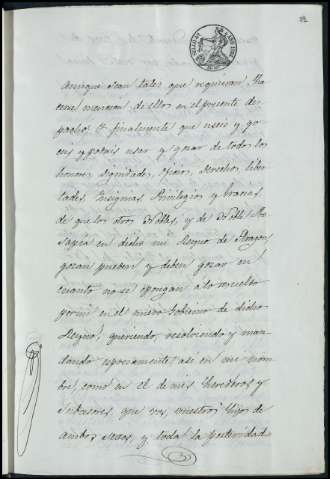 aunque sean tales que requieran ha
cerse mencion de ellos en el presente des
pacho. Y finalmente que useis y go
ceis y podais usar y gozar de todos los
honores, dignidades, oficios, derechos, liber
tades, Insignias Privilegios y Gracias
de que los otros Nobles, y de Noble Pro
sapia en dicho mi Reyno de Aragon
gozan pueden y deben gozar en
cuanto no se opongan a lo resuelto
por mi en el nuevo Gobierno de dicho
Reyno; queriendo, resolviendo y man
dando expresamente, asi en mi nom
bre, como en el de mis herederos y
Subcesores, que vos, vuestros hijos de
ambos sexos, y toda la posteridad